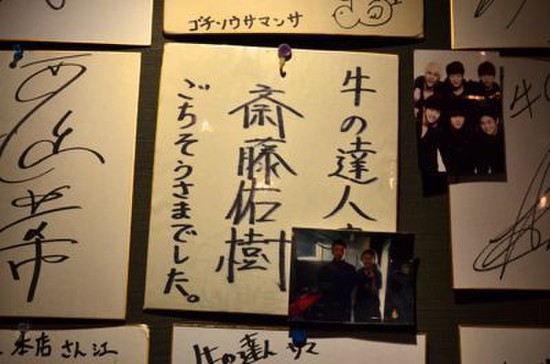 ゴチソウサマンサ
牛の達人
斎藤佑樹
ごちそうさまでした。
牛
本店さん江
牛の達人サマ